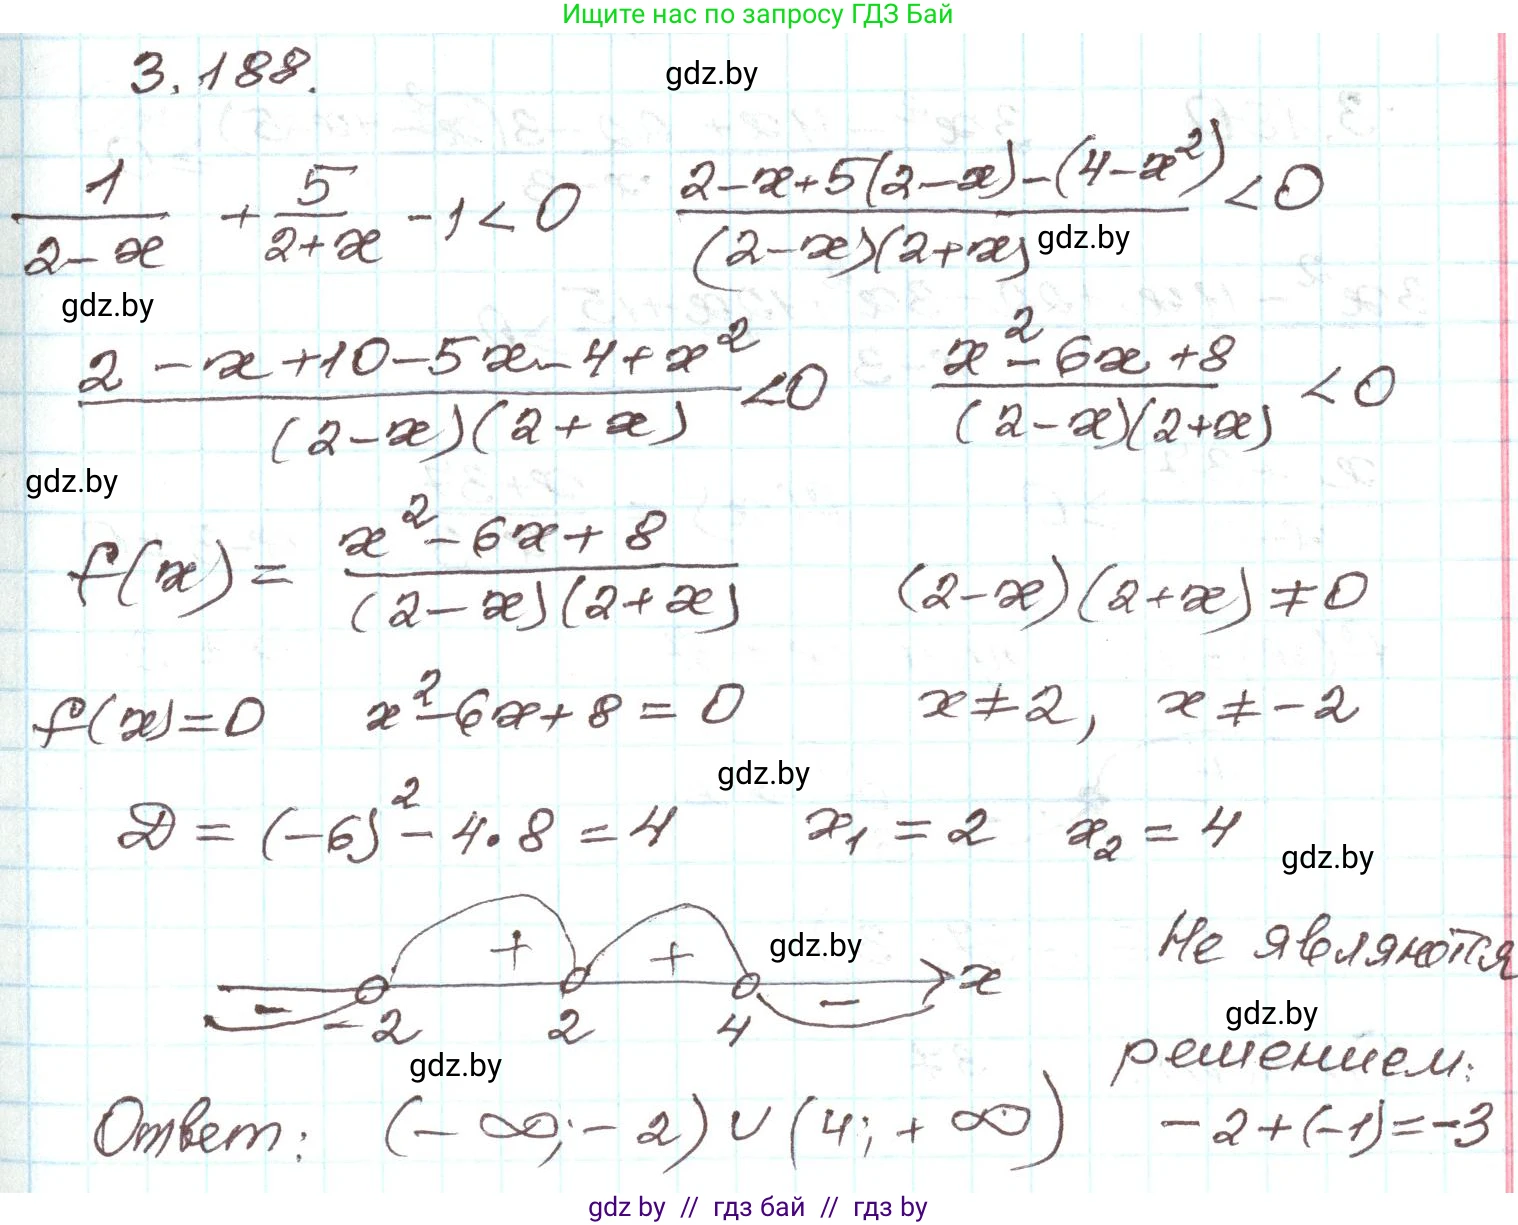 Ищите нас по запросу ГДЗ Бай
3.188.
gdz.by
1/(2-x) + 5/(2+x) - 1 < 0    (2-x+5(2-x)-(4-x²))/((2-x)(2+x)) < 0
gdz.by
gdz.by
(2-x+10-5x-4+x²)/((2-x)(2+x)) < 0    (x²-6x+8)/((2-x)(2+x)) < 0
gdz.by
f(x) = (x²-6x+8)/((2-x)(2+x))    (2-x)(2+x) ≠ 0
f(x)=0    x²-6x+8=0    x≠2, x≠-2
gdz.by
D = (-6)² - 4·8 = 4    x₁ = 2    x₂ = 4
gdz.by
+ + gdz.by
Не являются
- - x
-2 2 4
gdz.by
решением:
gdz.by
Ответ: (-∞;-2) ∪ (4;+∞)    -2+(-1)=-3
gdz by // гдз бай // гдз by